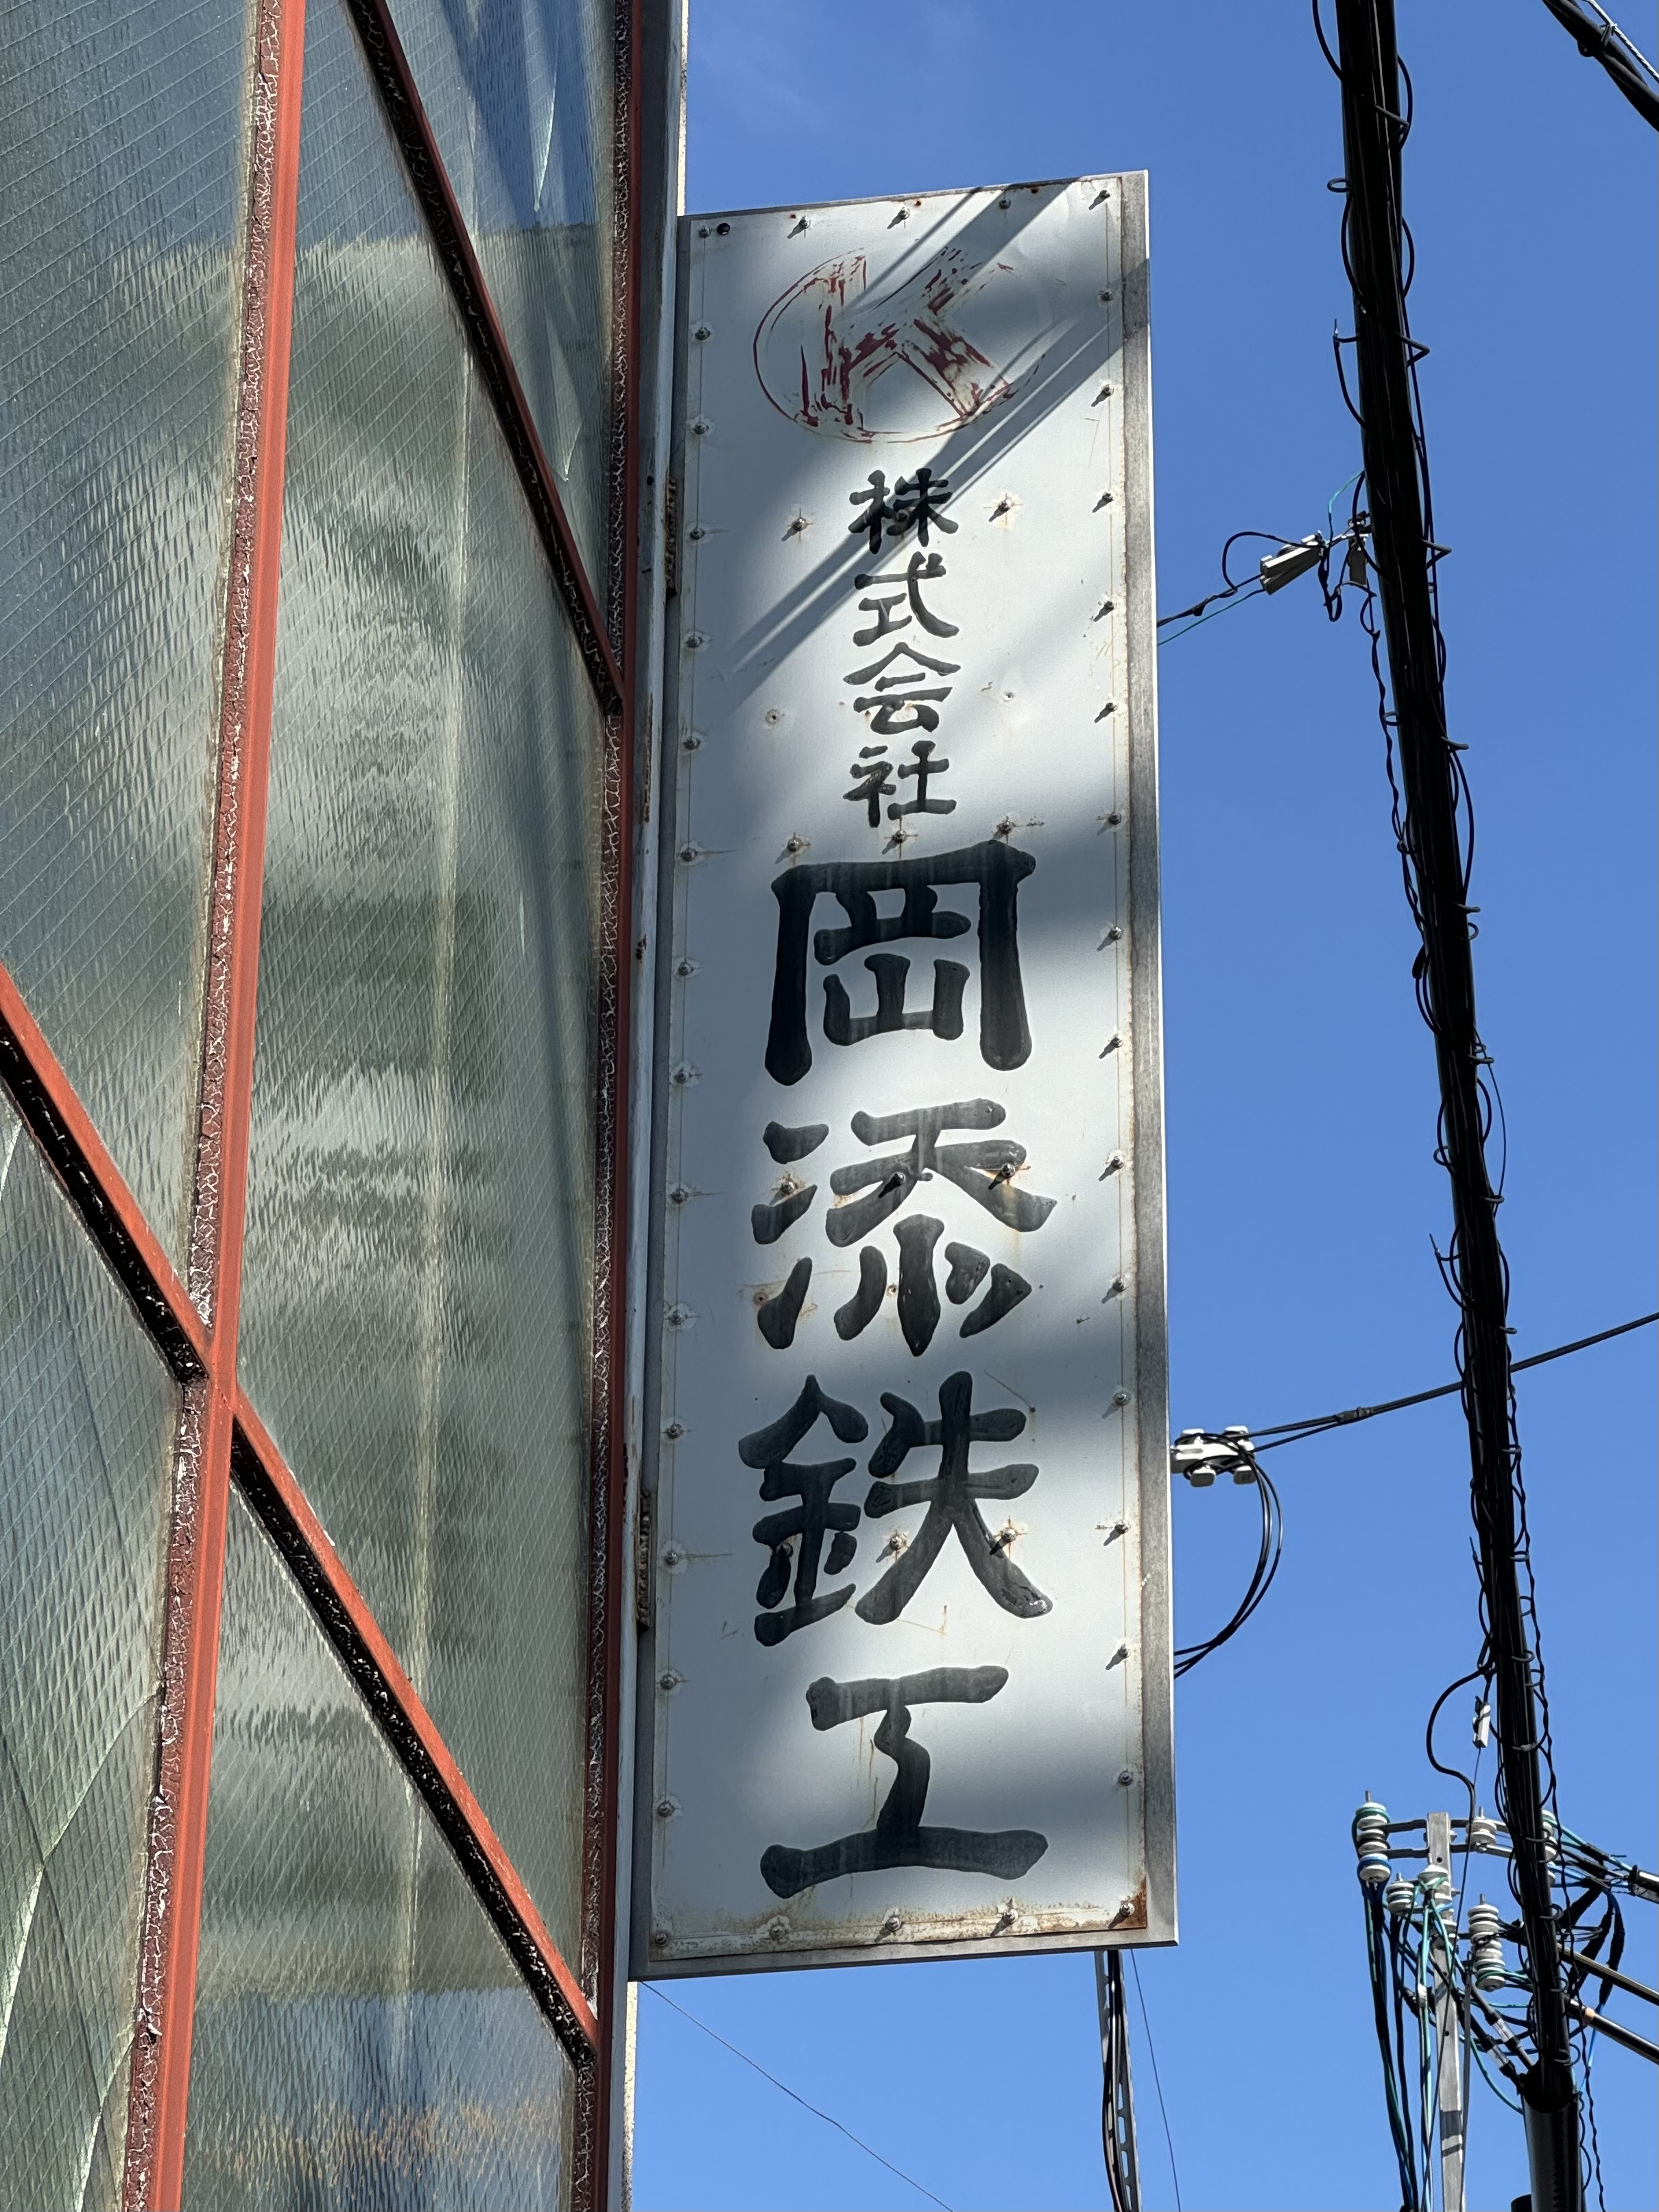 K
株式会社
岡添鉄工